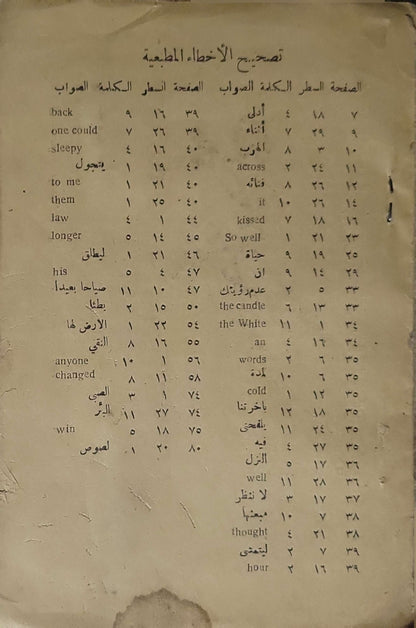 تصحيح الأخطاء المطبعية
الصفحة السطر الكلمة الصواب
٧ ١٨ ٤ أدلى
٩ ٢٩ ٧ أثناء
١٠ ٣ ٨ الهرب
١١ ٢٤ ٢ across
١٢ ٢٦ ٨ فنائه
١٤ ٢٦ ١٠ it
١٦ ١٨ ٧ kissed
٢٣ ٢١ ١ So well
٢٥ ١٩ ٩ حياة
٢٩ ١٤ ٩ ان
٣٣ ٥ ٢ عدم رؤيتك
٣٣ ١٣ ٦ the candle
٣٤ ١ ١١ the White
٣٤ ١٦ ٤ an
٣٥ ٦ ٢ words
٣٥ ٦ ١٠ لمدة
٣٥ ١٢ ١ cold
٣٥ ١٨ ١٢ باخرتنا
٣٥ ٢٤ ١١ يلفحني
٣٥ ٢٧ ٤ فيه
٣٦ ١٧ ٥ النزل
٣٦ ٢٨ ١١ well
٣٧ ١٧ ٣ لا ننتظر
٣٨ ٧ ١٠ مبعثها
٣٨ ٢١ ٤ thought
٣٩ ٧ ٢ ليتمشى
٣٩ ١٦ ٢ hour
الصفحة السطر الكلمة الصواب
٣٩ ١٦ ٩ back
٣٩ ٢٦ ٧ one could
٤٠ ١٦ ٤ sleepy
٤٠ ١٩ ١ يتجول
٤٠ ٢١ ١ to me
٤٠ ٢٥ ١ them
٤٤ ١ ٤ law
٤٥ ١٤ ٥ longer
٤٦ ٢١ ١ ليطلق
٤٧ ٤ ٥ his
٤٧ ١٠ ١١ صباحا بعيدا
٥٠ ١٥ ٢ بطئا
٥٤ ٢٢ ١ الارض لها
٥٥ ١٦ ٨ النقي
٥٦ ١ ١٠ anyone
٥٨ ١١ ٨ changed
٧٤ ١ ٣ الصبي
٧٤ ٢٧ ١١ البئر
٧٥ ١٨ ٥ win
٨٠ ٢٠ ١ لصوص